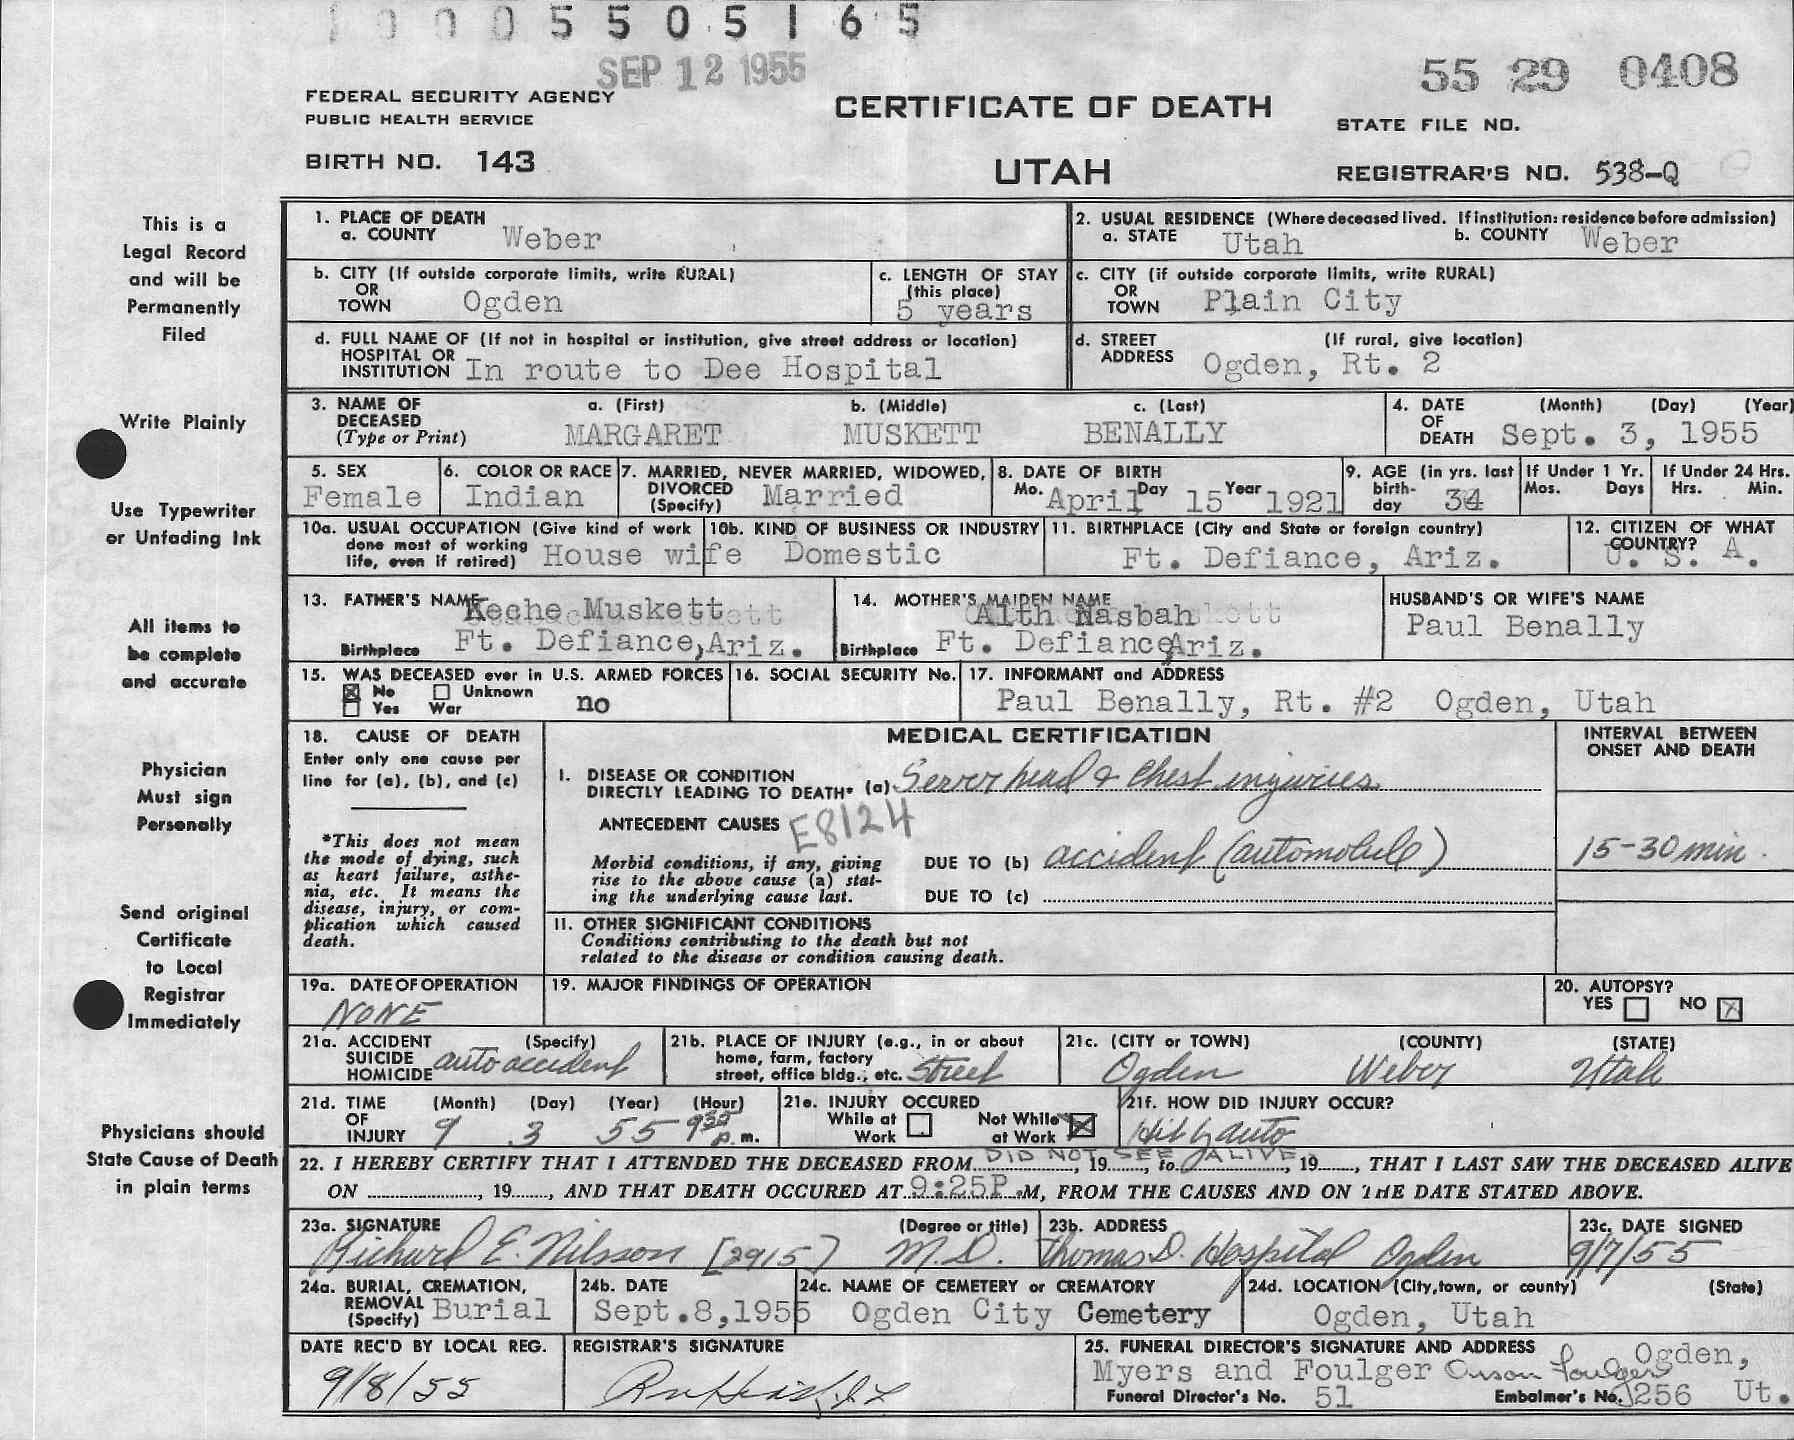 1 0 0 0 5 5 0 5 1 6 5
SEP 12 1955
55 29 0408
FEDERAL SECURITY AGENCY
PUBLIC HEALTH SERVICE
CERTIFICATE OF DEATH
STATE FILE NO.
BIRTH NO. 143
UTAH
REGISTRAR'S NO. 538-Q
This is a
Legal Record
and will be
Permanently
Filed
Write Plainly
Use Typewriter
or Unfading Ink
All items to
be complete
and accurate
Physician
Must sign
Personally
Send original
Certificate
to Local
Registrar
Immediately
Physicians should
State Cause of Death
in plain terms
1. PLACE OF DEATH
a. COUNTY Weber
2. USUAL RESIDENCE (Where deceased lived. If institution: residence before admission)
a. STATE Utah b. COUNTY Weber
b. CITY (If outside corporate limits, write RURAL)
OR
TOWN Ogden
c. LENGTH OF STAY
(this place)
5 years
c. CITY (if outside corporate limits, write RURAL)
OR
TOWN Plain City
d. FULL NAME OF (If not in hospital or institution, give street address or location)
HOSPITAL OR
INSTITUTION In route to Dee Hospital
d. STREET (If rural, give location)
ADDRESS Ogden, Rt. 2
3. NAME OF a. (First) b. (Middle) c. (Last)
DECEASED
(Type or Print) MARGARET MUSKETT BENALLY
4. DATE (Month) (Day) (Year)
OF
DEATH Sept. 3, 1955
5. SEX
Female
6. COLOR OR RACE
Indian
7. MARRIED, NEVER MARRIED, WIDOWED,
DIVORCED
(Specify) Married
8. DATE OF BIRTH
Mo. April Day 15 Year 1921
9. AGE (in yrs. last
birth-
day 34
If Under 1 Yr.
Mos. Days
If Under 24 Hrs.
Hrs. Min.
10a. USUAL OCCUPATION (Give kind of work
done most of working
life, even if retired) House wife
10b. KIND OF BUSINESS OR INDUSTRY
Domestic
11. BIRTHPLACE (City and State or foreign country)
Ft. Defiance, Ariz.
12. CITIZEN OF WHAT
COUNTRY?
U. S. A.
13. FATHER'S NAME Keche Muskett
Birthplace Ft. Defiance, Ariz.
14. MOTHER'S MAIDEN NAME
Alth Nasbah
Birthplace Ft. Defiance, Ariz.
HUSBAND'S OR WIFE'S NAME
Paul Benally
15. WAS DECEASED ever in U.S. ARMED FORCES
No Unknown
Yes War no
16. SOCIAL SECURITY No.
17. INFORMANT and ADDRESS
Paul Benally, Rt. #2 Ogden, Utah
18. CAUSE OF DEATH
Enter only one cause per
line for (a), (b), and (c)
*This does not mean
the mode of dying, such
as heart failure, asthe-
nia, etc. It means the
disease, injury, or com-
plication which caused
death.
MEDICAL CERTIFICATION
INTERVAL BETWEEN
ONSET AND DEATH
I. DISEASE OR CONDITION
DIRECTLY LEADING TO DEATH* (a) Sever head & Chest injuries
ANTECEDENT CAUSES E8124
Morbid conditions, if any, giving
rise to the above cause (a) stat-
ing the underlying cause last.
DUE TO (b) accident (automobile) 15-30 min.
DUE TO (c)
11. OTHER SIGNIFICANT CONDITIONS
Conditions contributing to the death but not
related to the disease or condition causing death.
19a. DATE OF OPERATION
NONE
19. MAJOR FINDINGS OF OPERATION
20. AUTOPSY?
YES NO
21a. ACCIDENT (Specify)
SUICIDE
HOMICIDE auto accident
21b. PLACE OF INJURY (e.g., in or about
home, farm, factory
street, office bldg., etc. Street
21c. (CITY or TOWN) (COUNTY) (STATE)
Ogden Weber Utah
21d. TIME (Month) (Day) (Year) (Hour)
OF
INJURY 9 3 55 9 p.m.
21e. INJURY OCCURED
While at Work Not While at Work
21f. HOW DID INJURY OCCUR?
Hit by auto
22. I HEREBY CERTIFY THAT I ATTENDED THE DECEASED FROM DID NOT, 19 SEE, to ALIVE, 19, THAT I LAST SAW THE DECEASED ALIVE
ON, 19, AND THAT DEATH OCCURED AT 9:25P.M, FROM THE CAUSES AND ON THE DATE STATED ABOVE.
23a. SIGNATURE (Degree or title)
Richard E. Nilsson [2915] M.D.
23b. ADDRESS
Thomas D. Hospital Ogden
23c. DATE SIGNED
9/7/55
24a. BURIAL, CREMATION,
REMOVAL
(Specify) Burial
24b. DATE
Sept.8,1955
24c. NAME OF CEMETERY or CREMATORY
Ogden City Cemetery
24d. LOCATION (City,town, or county) (State)
Ogden, Utah
DATE REC'D BY LOCAL REG.
9/8/55
REGISTRAR'S SIGNATURE
25. FUNERAL DIRECTOR'S SIGNATURE AND ADDRESS
Myers and Foulger Orson Foulger Ogden,
Funeral Director's No. 51 Embalmer's No. 256 Ut.